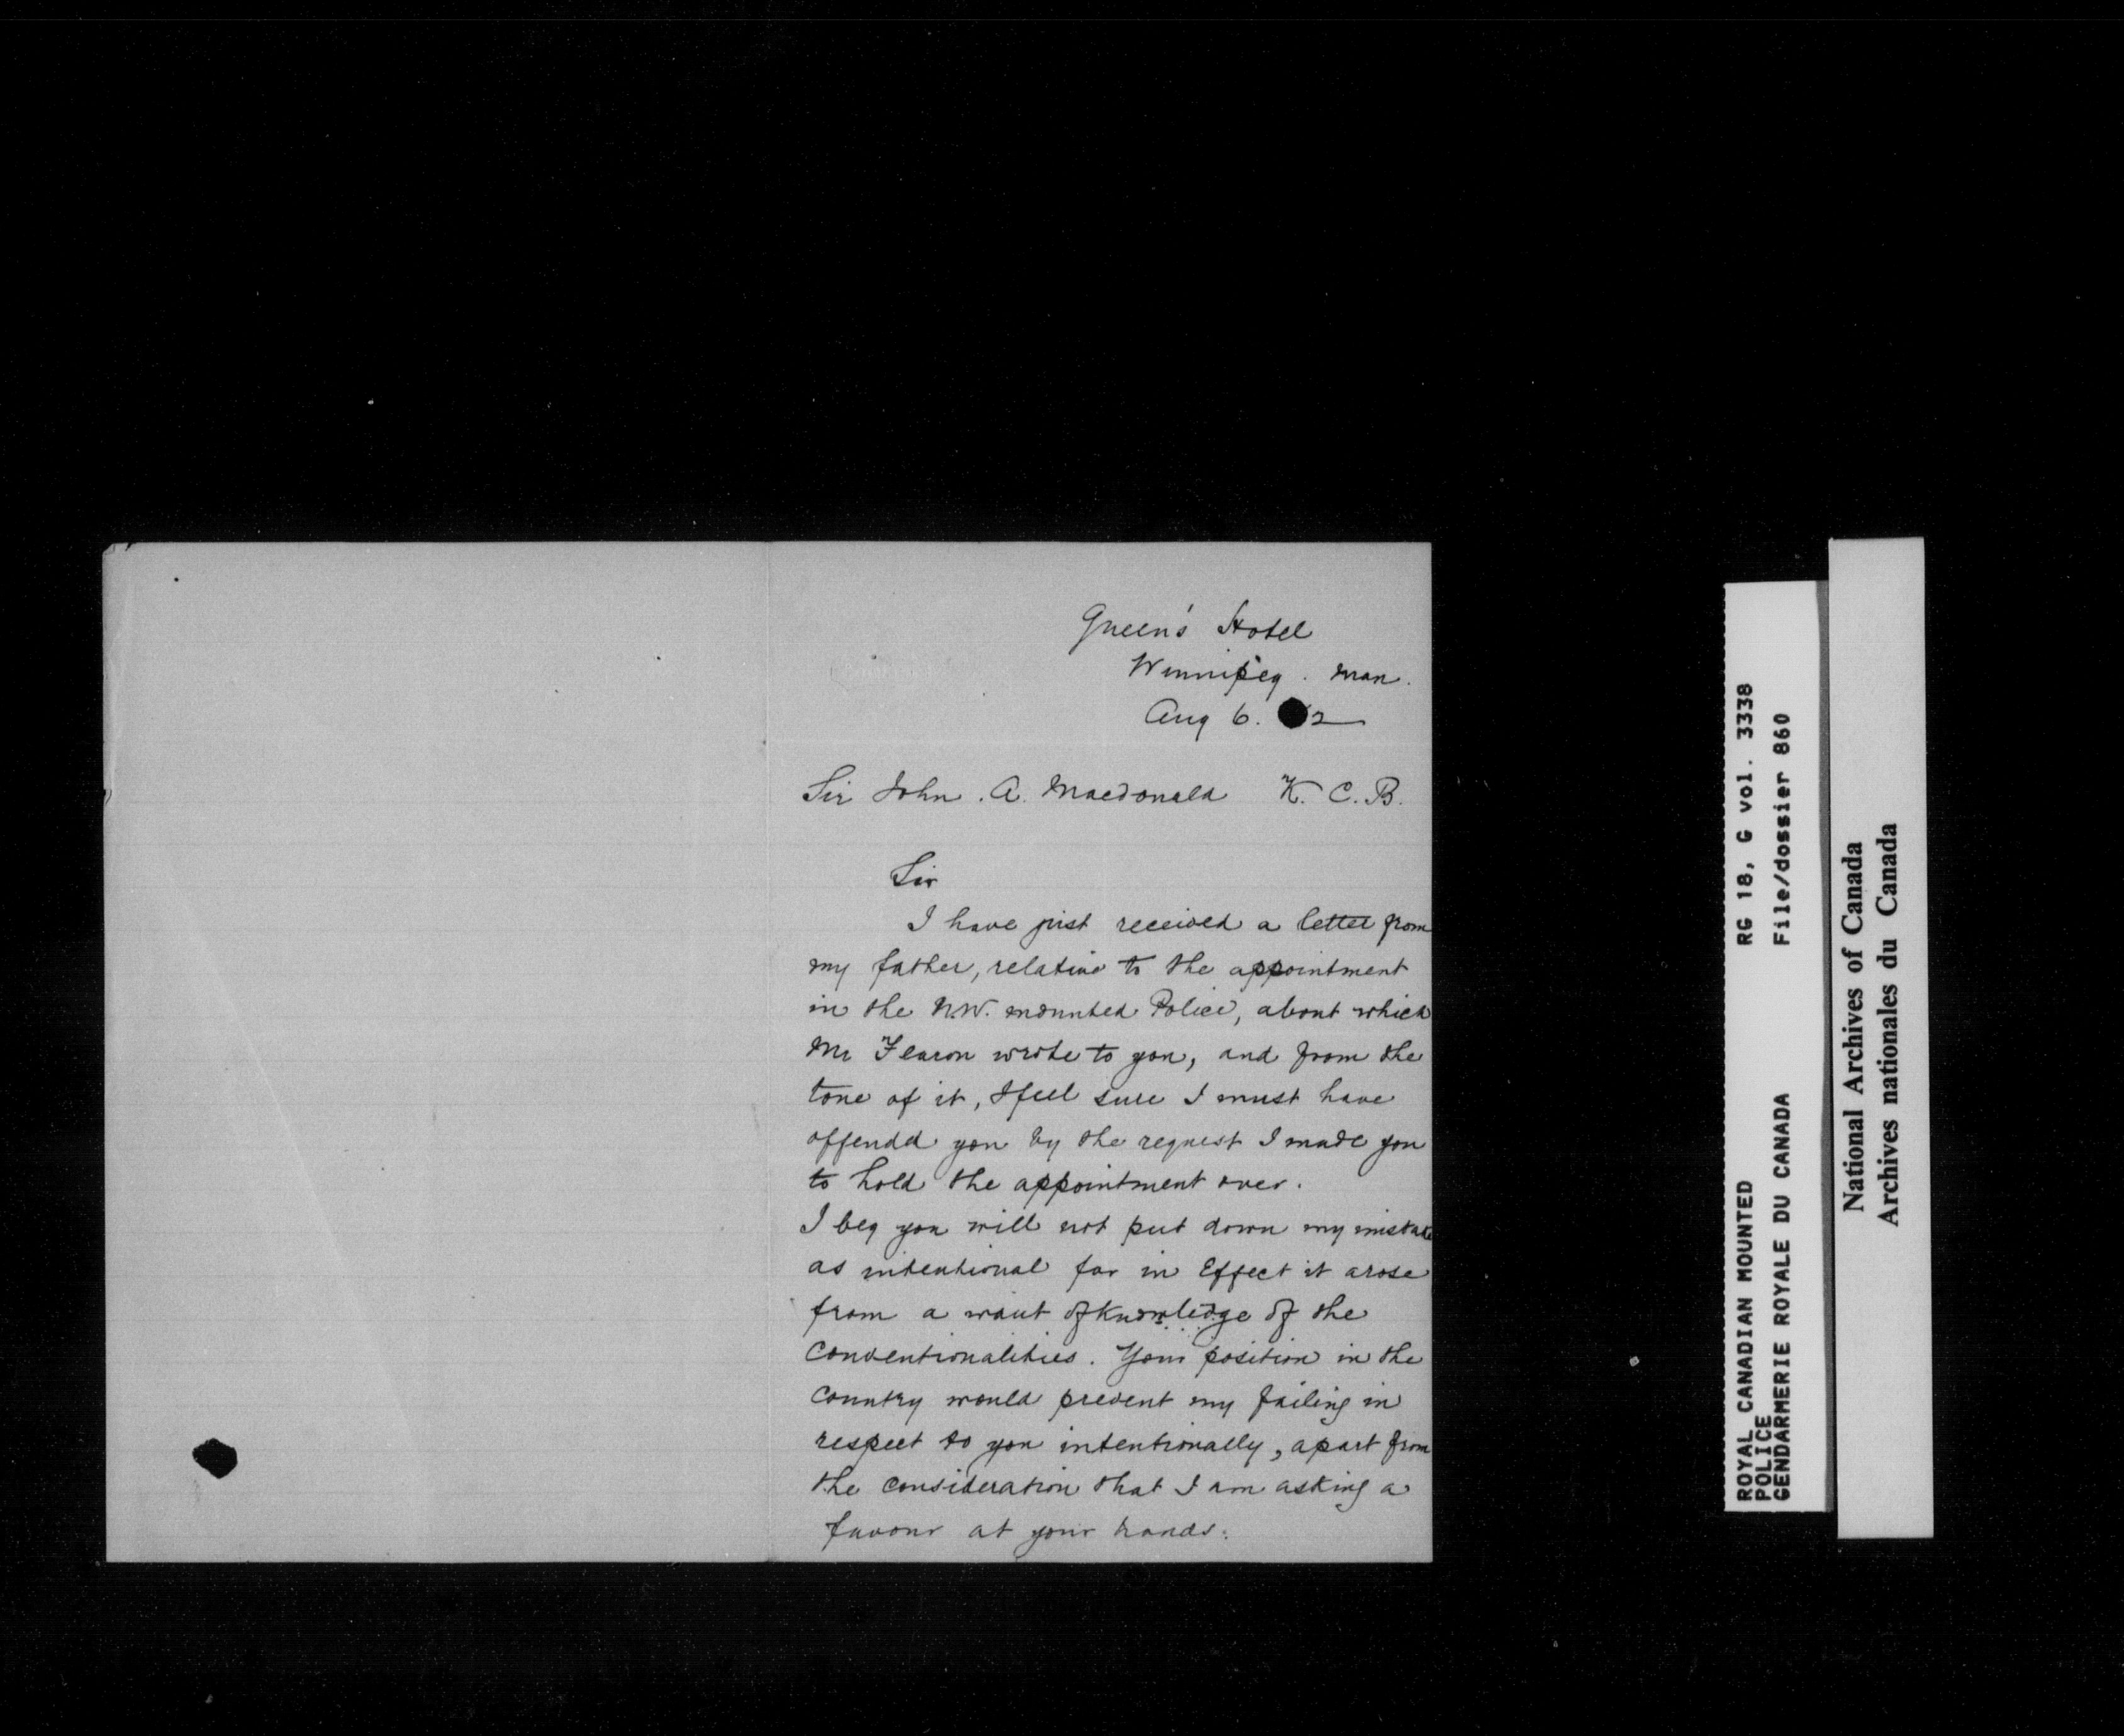 Queen's Hotel
Winnipeg. Man.
Aug 6. 2
Sir John. A. Macdonald K. C. B.
Sir
I have just received a letter from
my father, relative to the appointment
in the N.W. mounted Police, about which
Mr Fearon wrote to you, and from the
tone of it, I feel sure I must have
offendd you by the request I made you
to hold the appointment over.
I beg you will not put down my mistake
as intentional for in Effect it arose
from a want of knowledge of the
Conventionalities. Your position in the
Country would prevent my failing in
respect to you intentionally, apart from
the consideration that I am asking a
favour at your hands.
ROYAL CANADIAN MOUNTED RG 18, G vol. 3338
POLICE
GENDARMERIE ROYALE DU CANADA File/dossier 860
National Archives of Canada
Archives nationales du Canada